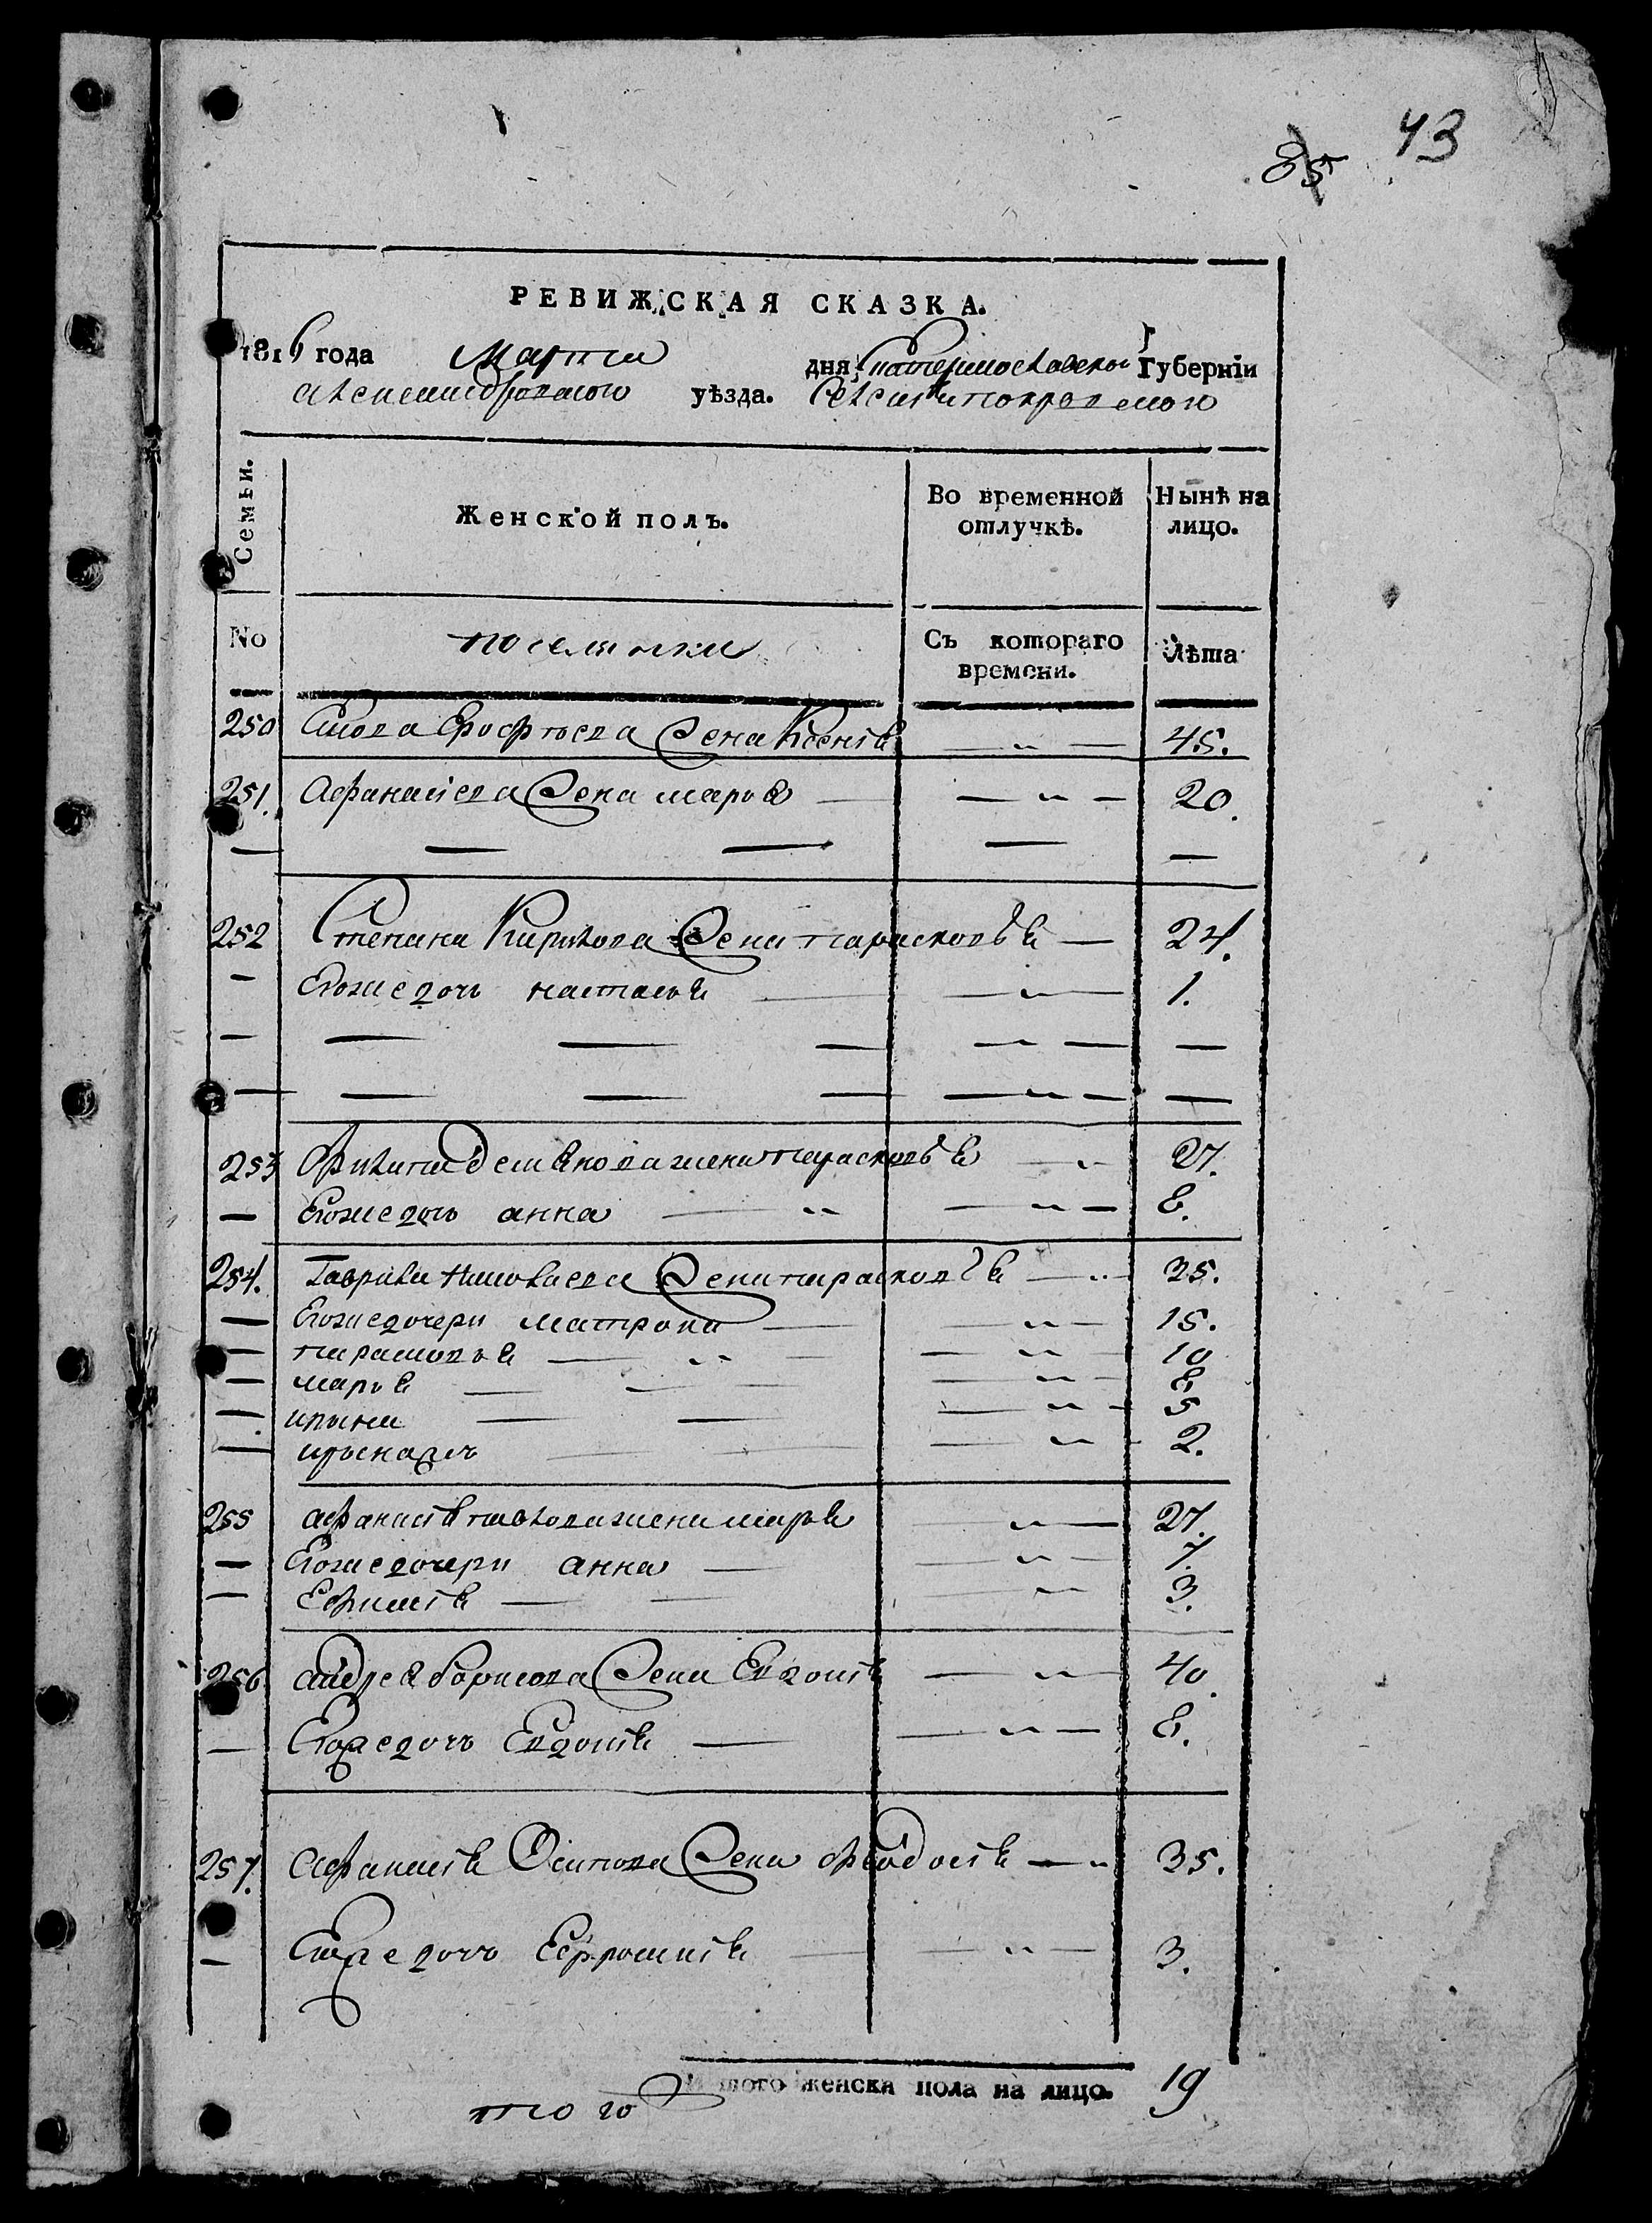 43
85
РЕВИЖСКАЯ СКАЗКА.
1816 года Марта дня Екатеринославской Губерніи
Александровского уѣзда. Села Покровского
Семьи. Женской полъ. Во временной отлучкѣ. Нынѣ на лицо.
No поселянки Съ котораго времени. Лѣта
250 Ерофѣева жена Ксенія — „ — 45.
251. Афанасіева жена марья — — „ — 20.
— — — — —
252 Степана Кирилова жена парасковья — 24.
- Егоже дочь настасья — — „ — 1.
— — — — — „ — —
— — — — — „ — —
253 жена парасковья — „ 27.
— Егоже дочь анна — „ — „ — 8.
254. Гаврила Николаева жена парасковья — „ — 35.
— Егоже дочери матрона — — „ — 15.
— парасковья — „ — — „ — 10
— марья — — — — „ — 8
— ирина — — — „ — 5
— — — — „ — 2.
255 афанасія павлова жена марья „ — 27.
— Егоже дочери анна — — „ — 7.
— Ефимія — — — „ — 3.
256 андрея борисова жена Евдокія — „ — 40.
— Егоже дочь Евдокія — — „ — 8.
257. афанасія Осипова жена феодосія — „ 35.
— Егоже дочь Ефросинія — — „ — 3.
Итого женска пола на лицо. 19
того